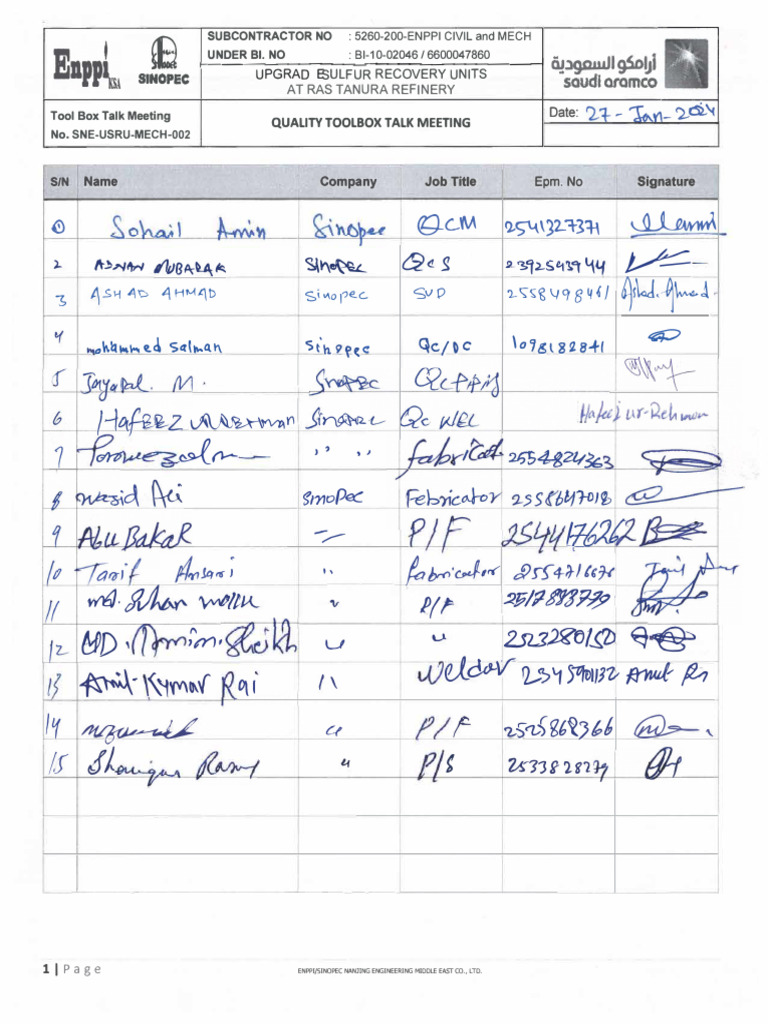 Enppi KSA
SINOPEC
SUBCONTRACTOR NO : 5260-200-ENPPI CIVIL and MECH
UNDER BI. NO : BI-10-02046 / 6600047860
UPGRAD ESULFUR RECOVERY UNITS
AT RAS TANURA REFINERY
أرامكو السعودية
saudi aramco
Tool Box Talk Meeting
No. SNE-USRU-MECH-002
QUALITY TOOLBOX TALK MEETING
Date: 27-Jan-2024
S/N Name Company Job Title Epm. No Signature
1 Sohail Amin Sinopec QCM 2541327371
2 ADNAN MUBARAK SINOPEC QCS 2392543944
3 ASHAD AHMAD Sinopec SUP 2558498461 Ashad Ahmad
4 mohammed Salman Sinopec QC/DC 1098182841
5 Jayapal. M. SINOPEC QC PIPING
6 HAFEEZ UR REHMAN SINOPEC QC WEL Hafeez ur-Rehman
7 " " fabricat. 2554824363
8 Wasid Ali SINOPEC Febricator 2558647018
9 ABU BAKAR P/F 2544176262
10 Tarif Ansari " fabricator 2554716676
11 md. " P/F 2517898779
12 MD. Momin. Sheikh " " 2523280150
13 Amit Kumar Rai " Weldor 2345901132 Amit
14 " P/F 2525868366
15 " P/S 2533828279
1 | Page
ENPPI/SINOPEC NANJING ENGINEERING MIDDLE EAST CO., LTD.